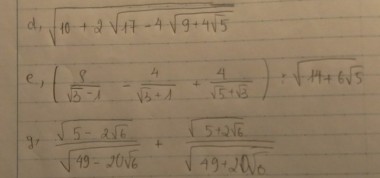 d, √(10 + 2√(17 - 4√(9 + 4√5)))
e, (8/(√5 - 1) - 4/(√5 + 1) + 4/(√5 + √3)) : √(14 + 6√5)
g, √(5 - 2√6)/√(49 - 20√6) + √(5 + 2√6)/√(49 + 20√6)